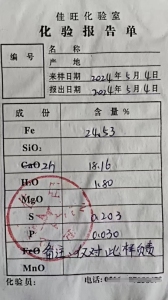 佳旺化验室
化验报告单
编号 名称
产地
来样日期 2024年5月4日
报出日期 2024年5月4日
成份 含量%
Fe 24.53
SiO₂
CaO Zn 18.16
H₂O 1.80
MgO
S 0.203
P 0.030
FeO 备注：仅对此样负责
MnO
化验员： 电话：